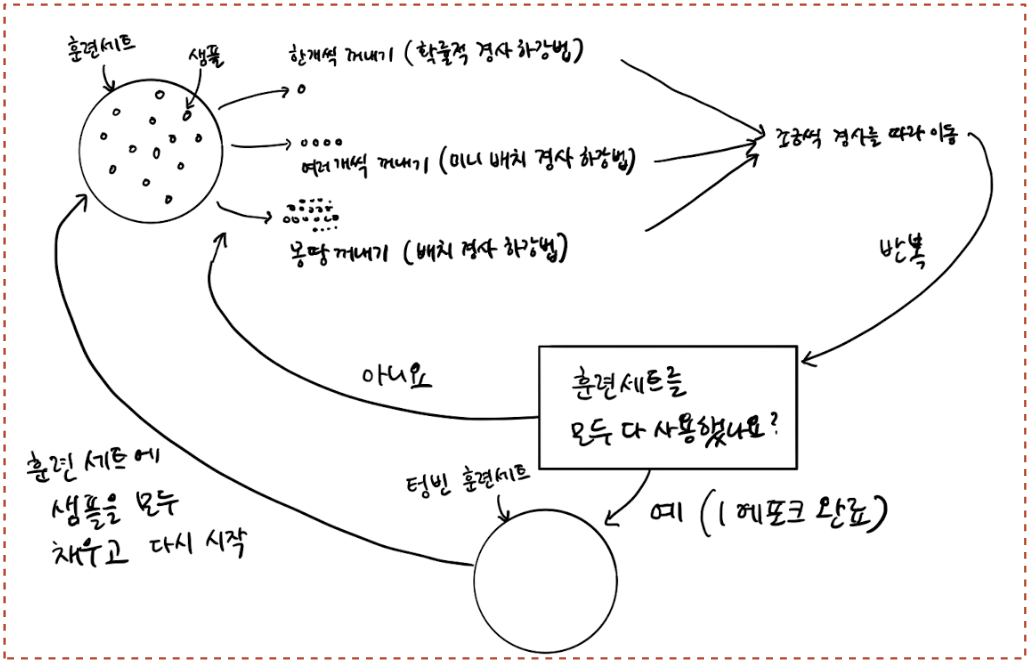 훈련세트
샘플
한개씩 꺼내기 (확률적 경사 하강법)
여러개씩 꺼내기 (미니 배치 경사 하강법)
몽땅 꺼내기 (배치 경사 하강법)
조금씩 경사를 따라 이동
반복
아니요
훈련세트를
모두 다 사용했나요?
예 (1 에포크 완료)
텅빈 훈련세트
훈련 세트에
샘플을 모두
채우고 다시 시작